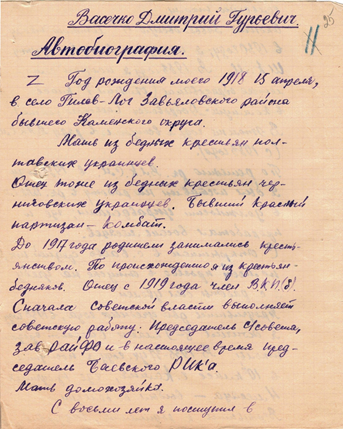 25
Васечко Дмитрий Гурьевич.
Автобиография.
11
Год рождения моего 1918 15 апреля,
в село Гилев-Лог Завьяловского района
бывшего Каменского округа.
Мать из бедных крестьян пол-
тавских украинцев.
Отец тоже из бедных крестьян чер-
ниговских украинцев. Бывший красный
партизан – комбат.
До 1917 года родители занимались кресть-
янством. По происхождения из крестьян-
бедняков. Отец с 1919 года член ВКП(б).
Сначала советской власти выполняет
советскую работу: Председатель с/совета,
зав РАЙФО и в настоящее время пред-
седатель Баевского РИКа.
Мать домохозяйка.
С восьми лет я поступил в